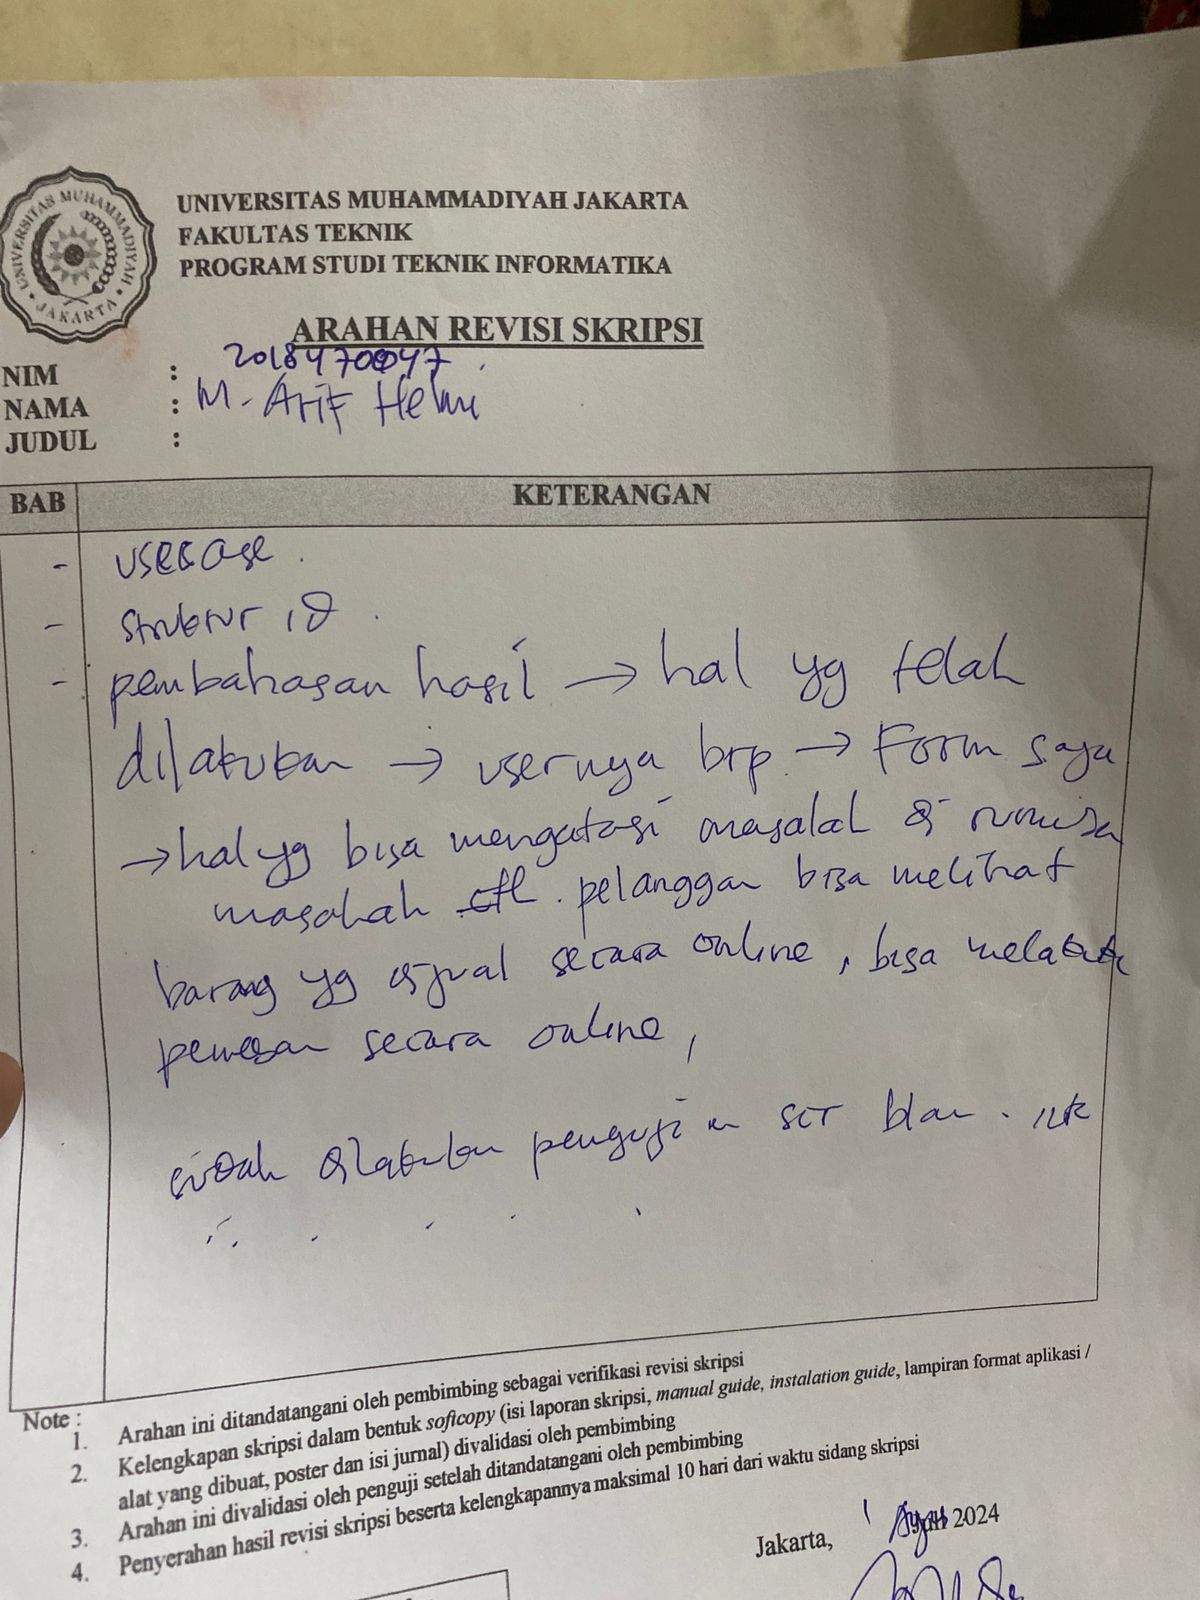 UNIVERSITAS MUHAMMADIYAH JAKARTA
UNIVERSITAS MUHAMMADIYAH JAKARTA
FAKULTAS TEKNIK
PROGRAM STUDI TEKNIK INFORMATIKA
ARAHAN REVISI SKRIPSI
NIM : 2018470047
NAMA : M. Arif Helmi
JUDUL :
BAB KETERANGAN
- usecase.
- struktur id.
- pembahasan hasil → hal yg telah
dilakukan → usernya brp → Form saja
→ hal yg bisa mengatasi masalah di rumusan
masalah cth. pelanggan bisa melihat
barang yg dijual secara online, bisa melakukan
pemesan secara online,
sudah dilakukan pengujian
Note :
1. Arahan ini ditandatangani oleh pembimbing sebagai verifikasi revisi skripsi
2. Kelengkapan skripsi dalam bentuk softcopy (isi laporan skripsi, manual guide, instalation guide, lampiran format aplikasi /
alat yang dibuat, poster dan isi jurnal) divalidasi oleh pembimbing
3. Arahan ini divalidasi oleh penguji setelah ditandatangani oleh pembimbing
4. Penyerahan hasil revisi skripsi beserta kelengkapannya maksimal 10 hari dari waktu sidang skripsi
Jakarta, 1 2024